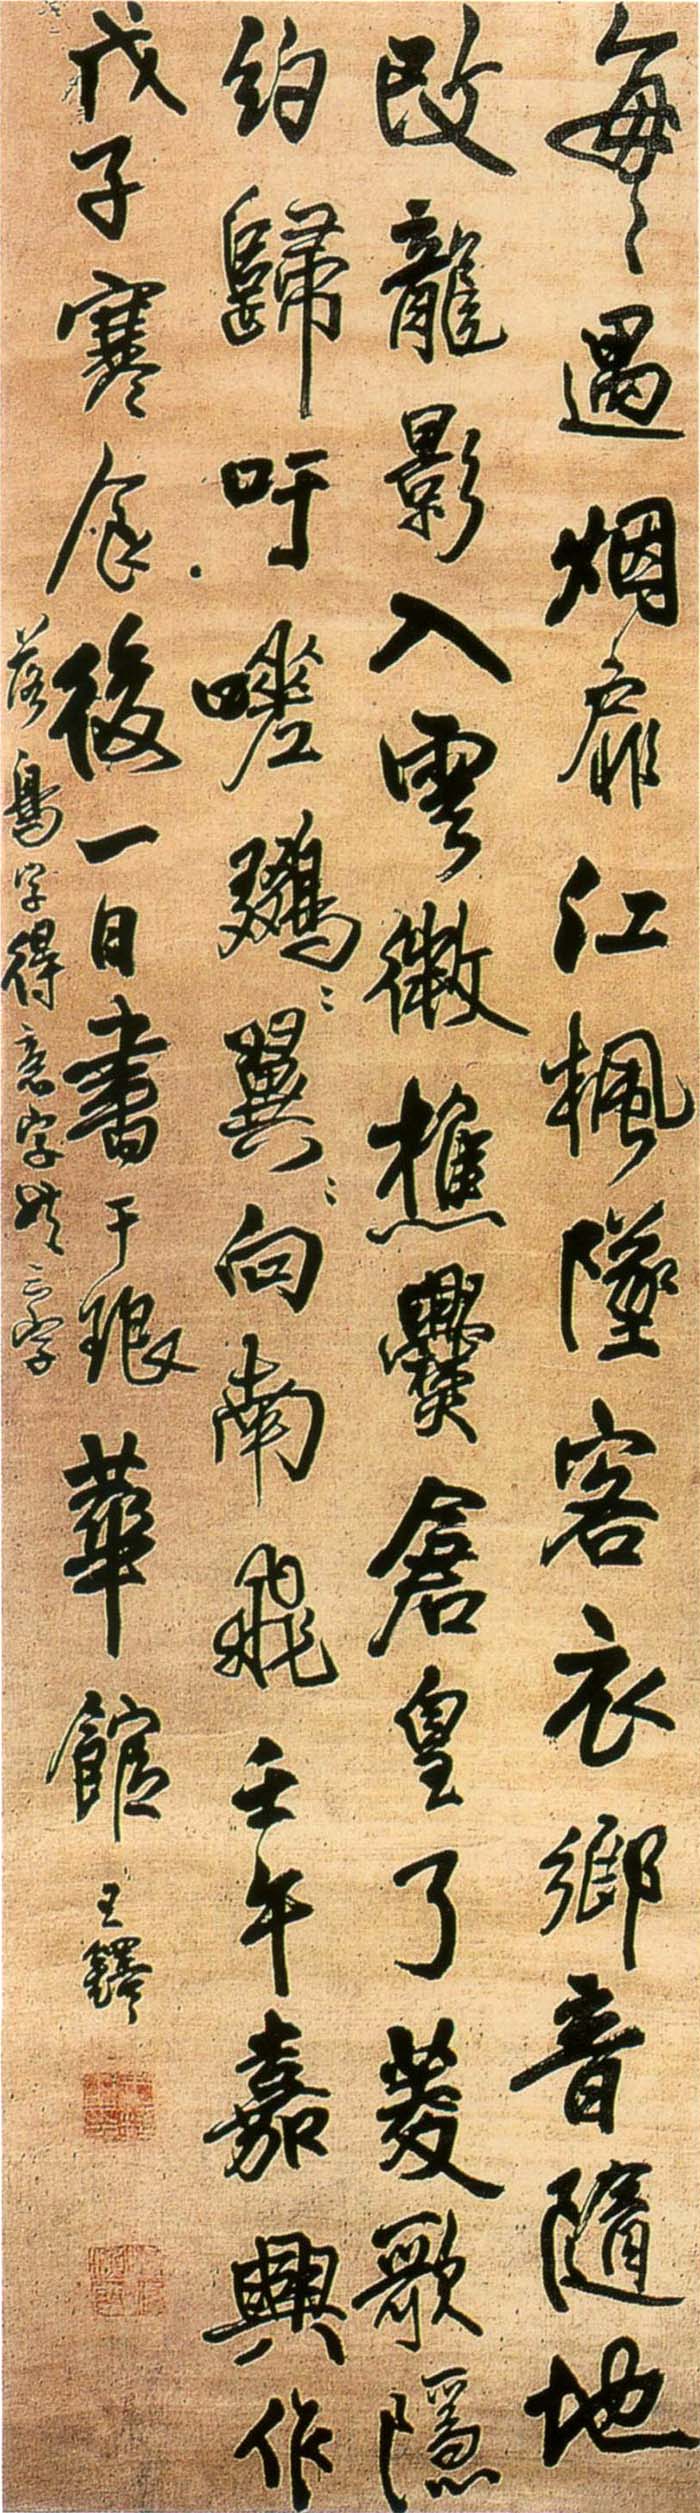 每〻遇烟扉江楓墜客衣鄉音隨地
改龍影入雲微樵爨倉皇了菱歌隱
約歸吁嗟鷄〻翼〻向南飛壬午嘉興作
戊子寒食後一日書于琅華館王鐸
落鳥字得意字其言字